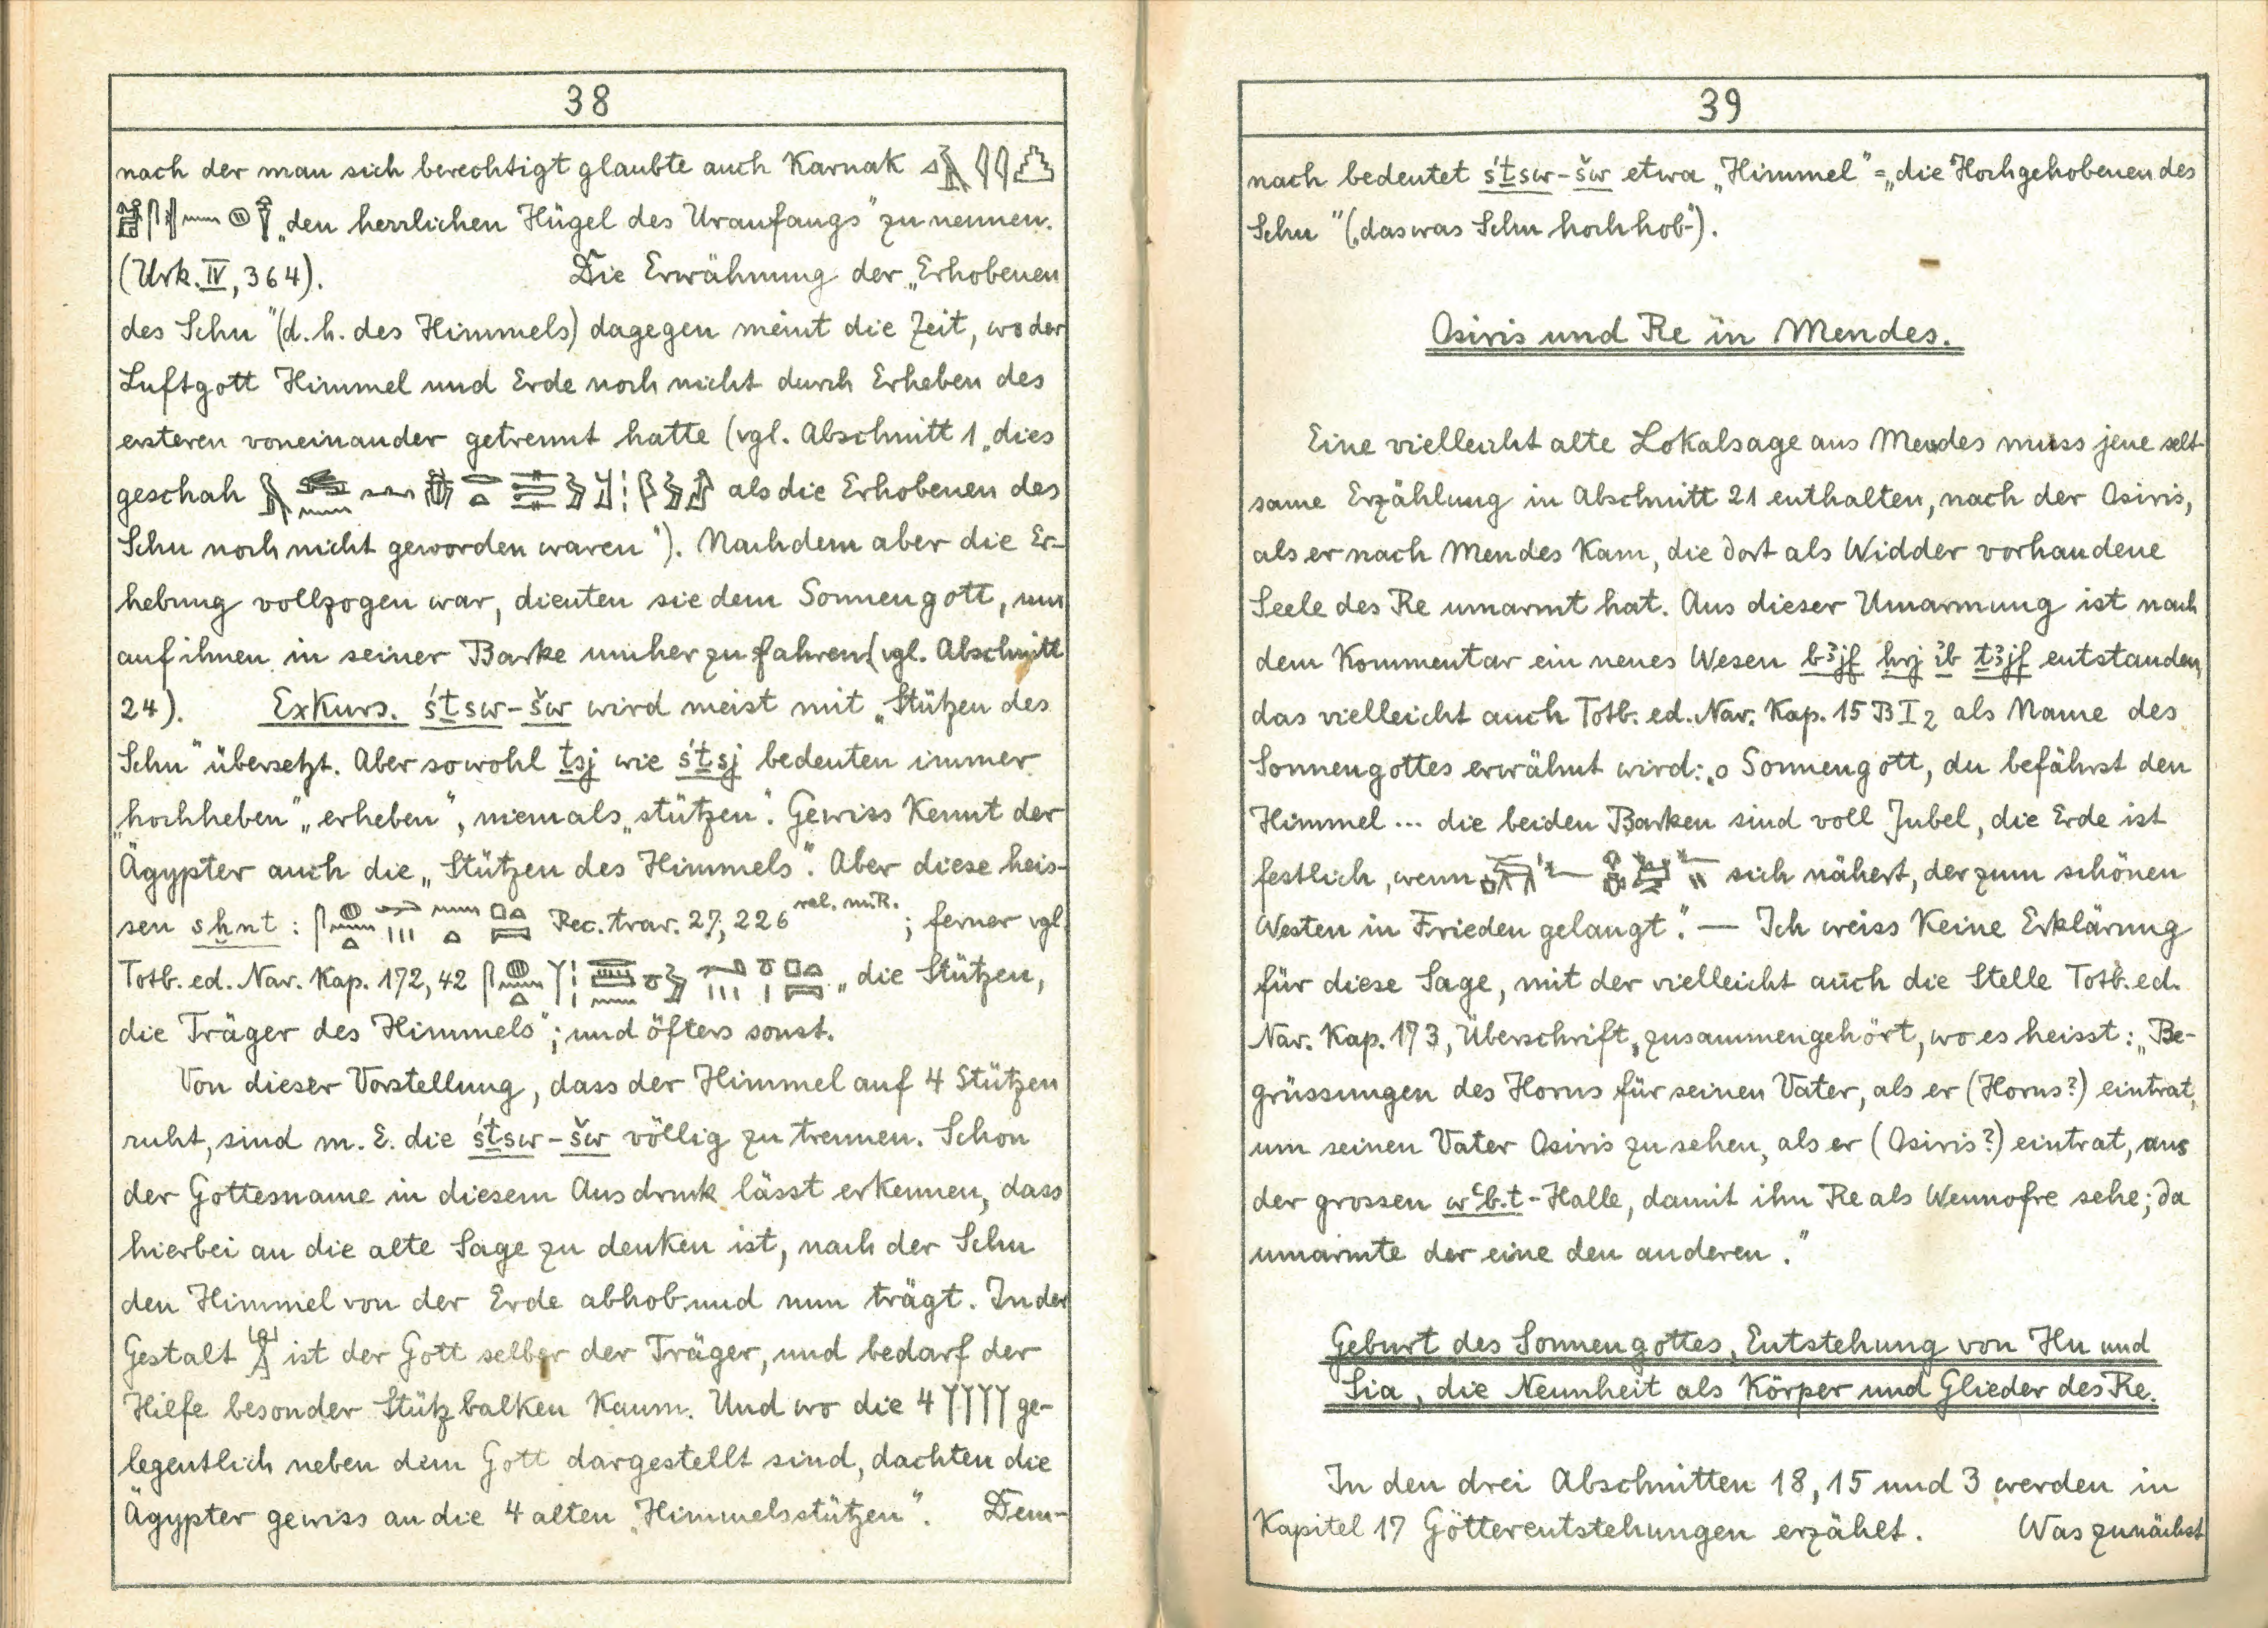 38
nach der man sich berechtigt glaubte auch Karnak
„den herrlichen Hügel des Uranfangs" zu nennen.
(Urk. IV, 364). Die Erwähnung der „Erhobenen
des Schu" (d. h. des Himmels) dagegen meint die Zeit, wo der
Luftgott Himmel und Erde noch nicht durch Erheben des
ersteren voneinander getrennt hatte (vgl. Abschnitt 1 „dies
geschah als die Erhobenen des
Schu noch nicht geworden waren"). Nachdem aber die Er-
hebung vollzogen war, dienten sie dem Sonnengott, um
auf ihnen in seiner Barke umherzufahren (vgl. Abschnitt
24). Exkurs. śṯsw-šw wird meist mit „Stützen des
Schu" übersetzt. Aber sowohl ṯsj wie śṯsj bedeuten immer
„hochheben" „erheben", niemals „stützen". Gewiss kennt der
Ägypter auch die „Stützen des Himmels". Aber diese heis-
sen sḫnt : Rec. trav. 27, 226 rel. m. R. ; ferner vgl.
Totb. ed. Nav. Kap. 172, 42 „die Stützen,
die Träger des Himmels"; und öfters sonst.
Von dieser Vorstellung, dass der Himmel auf 4 Stützen
ruht, sind m. E. die śṯsw-šw völlig zu trennen. Schon
der Gottesname in diesem Ausdruck lässt erkennen, dass
hierbei an die alte Sage zu denken ist, nach der Schu
den Himmel von der Erde abhob und nun trägt. In der
Gestalt ist der Gott selber der Träger, und bedarf der
Hilfe besonder Stützbalken kaum. Und wo die 4 ge-
legentlich neben dem Gott dargestellt sind, dachten die
Ägypter gewiss an die 4 alten „Himmelsstützen". Dem-
39
nach bedeutet śṯsw-šw etwa „Himmel" = „die Hochgehobenen des
Schu" („das was Schu hochhob").
Osiris und Re in Mendes.
Eine vielleicht alte Lokalsage aus Mendes muss jene selt-
same Erzählung in Abschnitt 21 enthalten, nach der Osiris,
als er nach Mendes kam, die dort als Widder vorhandene
Seele des Re umarmt hat. Aus dieser Umarmung ist nach
dem Kommentar ein neues Wesen bꜣjf ḥrj ỉb ṯꜣjf entstanden,
das vielleicht auch Totb. ed. Nav. Kap. 15 B I 2 als Name des
Sonnengottes erwähnt wird: „o Sonnengott, du befährst den
Himmel ... die beiden Barken sind voll Jubel, die Erde ist
festlich, wenn sich nähert, der zum schönen
Westen in Frieden gelangt". — Ich weiss keine Erklärung
für diese Sage, mit der vielleicht auch die Stelle Totb. ed.
Nav. Kap. 173, Überschrift, zusammengehört, wo es heisst: „Be-
grüssungen des Horus für seinen Vater, als er (Horus?) eintrat,
um seinen Vater Osiris zu sehen, als er (Osiris?) eintrat, aus
der grossen wꜥb.t-Halle, damit ihn Re als Wennofre sehe; da
umarmte der eine den anderen."
Geburt des Sonnengottes, Entstehung von Hu und
Sia, die Neunheit als Körper und Glieder des Re.
In den drei Abschnitten 18, 15 und 3 werden in
Kapitel 17 Götterentstehungen erzählt. Was zunächst